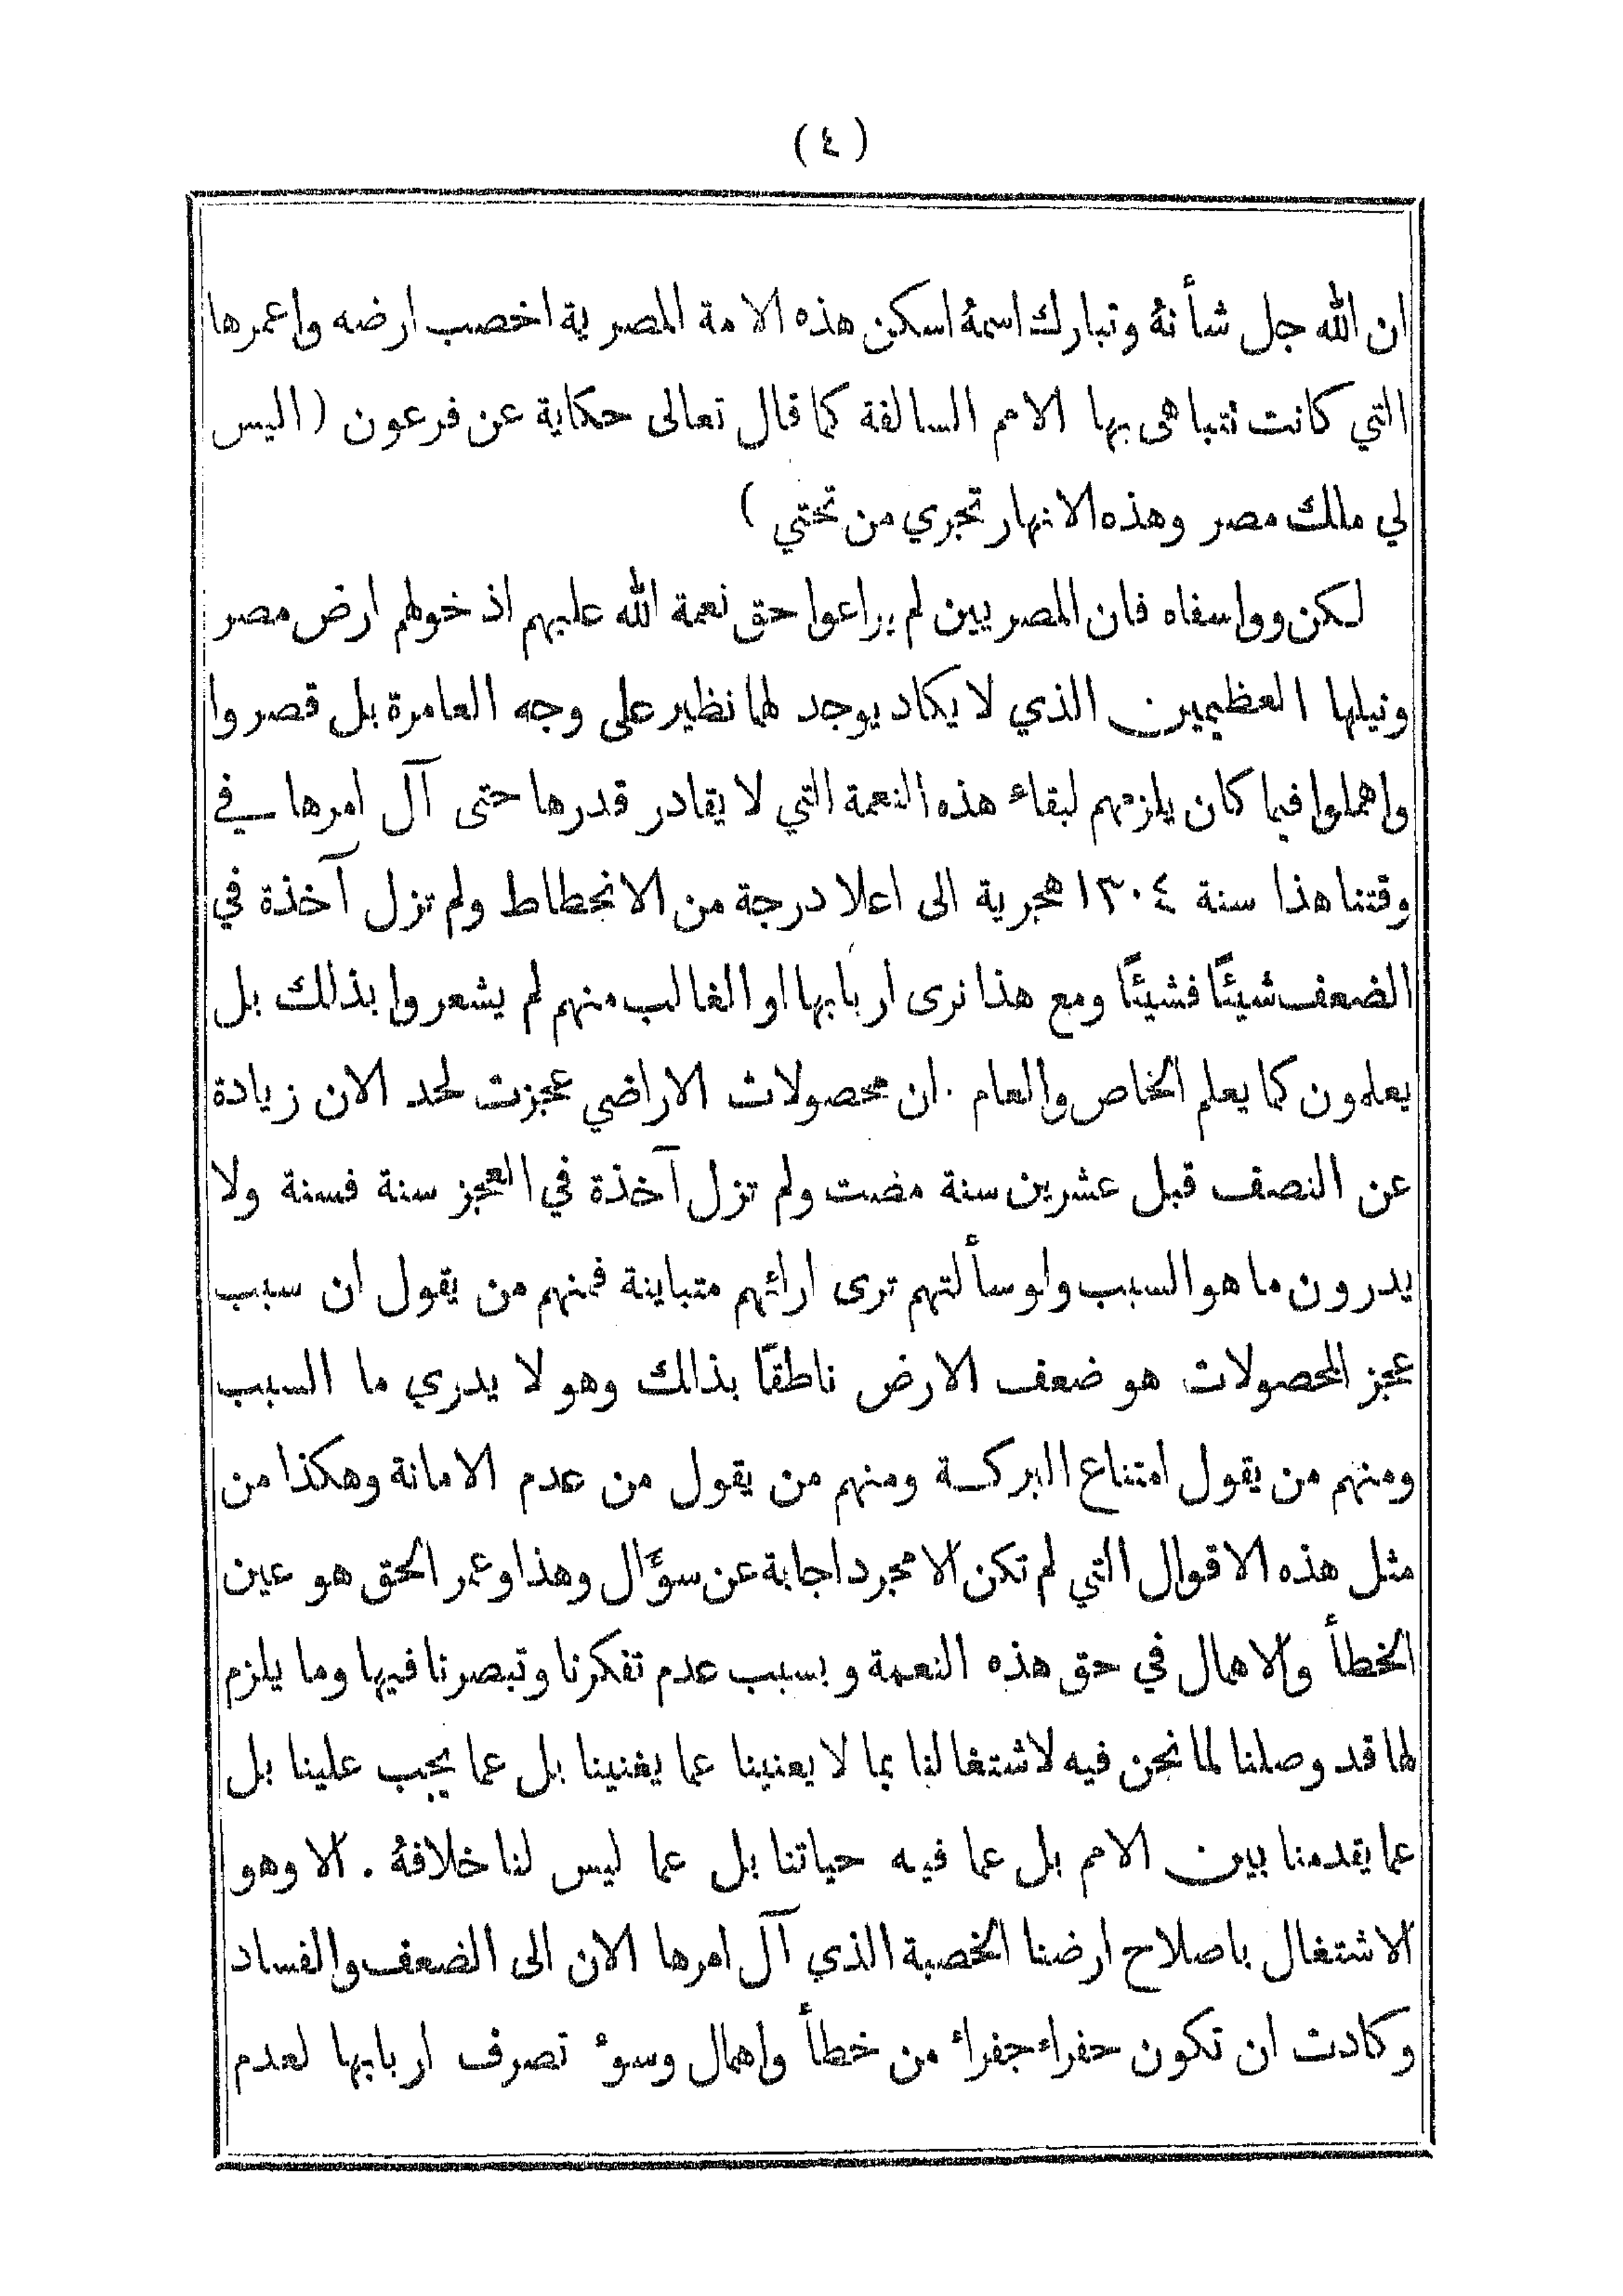 (٤)
ان الله جل شأنهُ وتبارك اسمهُ اسكن هذه الامة المصرية اخصب ارضه واعمرها
التي كانت نتباهى بها الامم السالفة كما قال تعالى حكاية عن فرعون (اليس
لي ملك مصر وهذه الانهار تجري من تحتي)
لكن وواسفاه فان المصريين لم يراعوا حق نعمة الله عليهم اذ خولهم ارض مصر
ونيلها العظيمين الذي لا يكاد يوجد لهما نظير على وجه العامرة بل قصروا
واهملوا فيما كان يلزمهم لبقاء هذه النعمة التي لا يقادر قدرها حتى آل امرها في
وقتنا هذا سنة ١٣٠٤ هجرية الى اعلا درجة من الانحطاط ولم تزل آخذة في
الضعف شيئًا فشيئًا ومع هذا نرى اربابها او الغالب منهم لم يشعروا بذلك بل
يعلمون كما يعلم الخاص والعام . ان محصولات الاراضي عجزت لحد الان زيادة
عن النصف قبل عشرين سنة مضت ولم تزل آخذة في العجز سنة فسنة ولا
يدرون ما هو السبب ولو سألتهم ترى ارائهم متباينة فمنهم من يقول ان سبب
عجز المحصولات هو ضعف الارض ناطقًا بذالك وهو لا يدري ما السبب
ومنهم من يقول امتناع البركة ومنهم من يقول من عدم الامانة وهكذا من
مثل هذه الاقوال التي لم تكن الا مجرد اجابة عن سؤَّال وهذا وعمر الحق هو عين
الخطأ والاهمال في حق هذه النعمة وبسبب عدم تفكرنا وتبصرنا فيها وما يلزم
لها قد وصلنا لما نحن فيه لاشتغالنا بما لا يعنينا عما يغنينا بل عما يجب علينا بل
عما يقدمنا بين الامم بل عما فيه حياتنا بل عما ليس لنا خلافهُ . الا وهو
الاشتغال باصلاح ارضنا الخصبة الذي آل امرها الان الى الضعف والفساد
وكادت ان تكون حفراء جفراء من خطأ واهمال وسوء تصرف اربابها لعدم